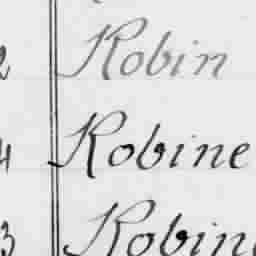 2 Robin
4 Robine
3 Robine